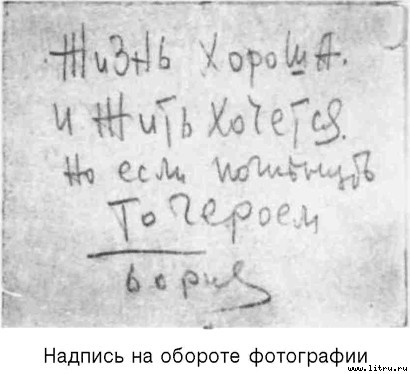 Жизнь хороша.
и жить хочется.
Но если погибнуть
то героем
Борис
Надпись на обороте фотографии
www.litru.ru